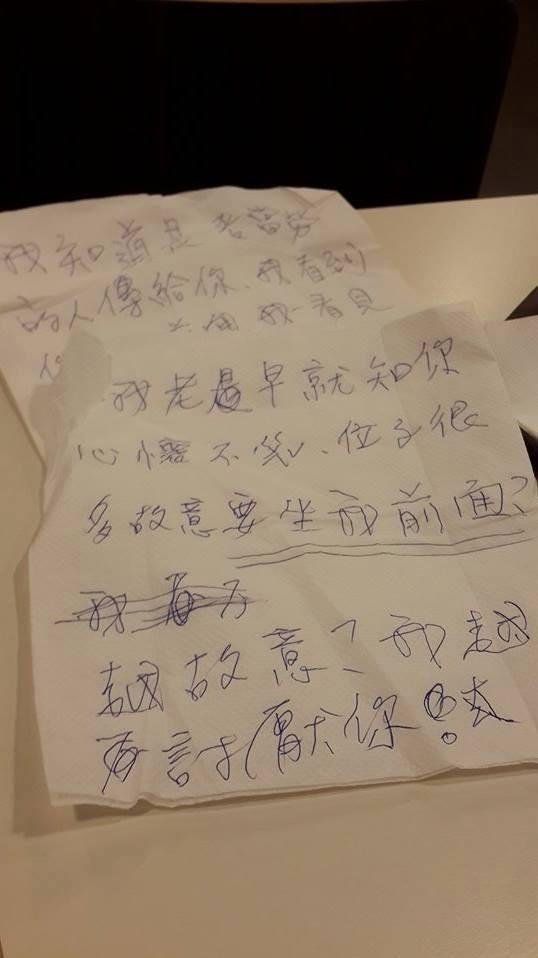 我知道是 老當勞
的人傳給你、我看到
我一看見
我老早就知你
心懷不
位子很
多故意要坐我前面?
越故意?我越
要討厭你!